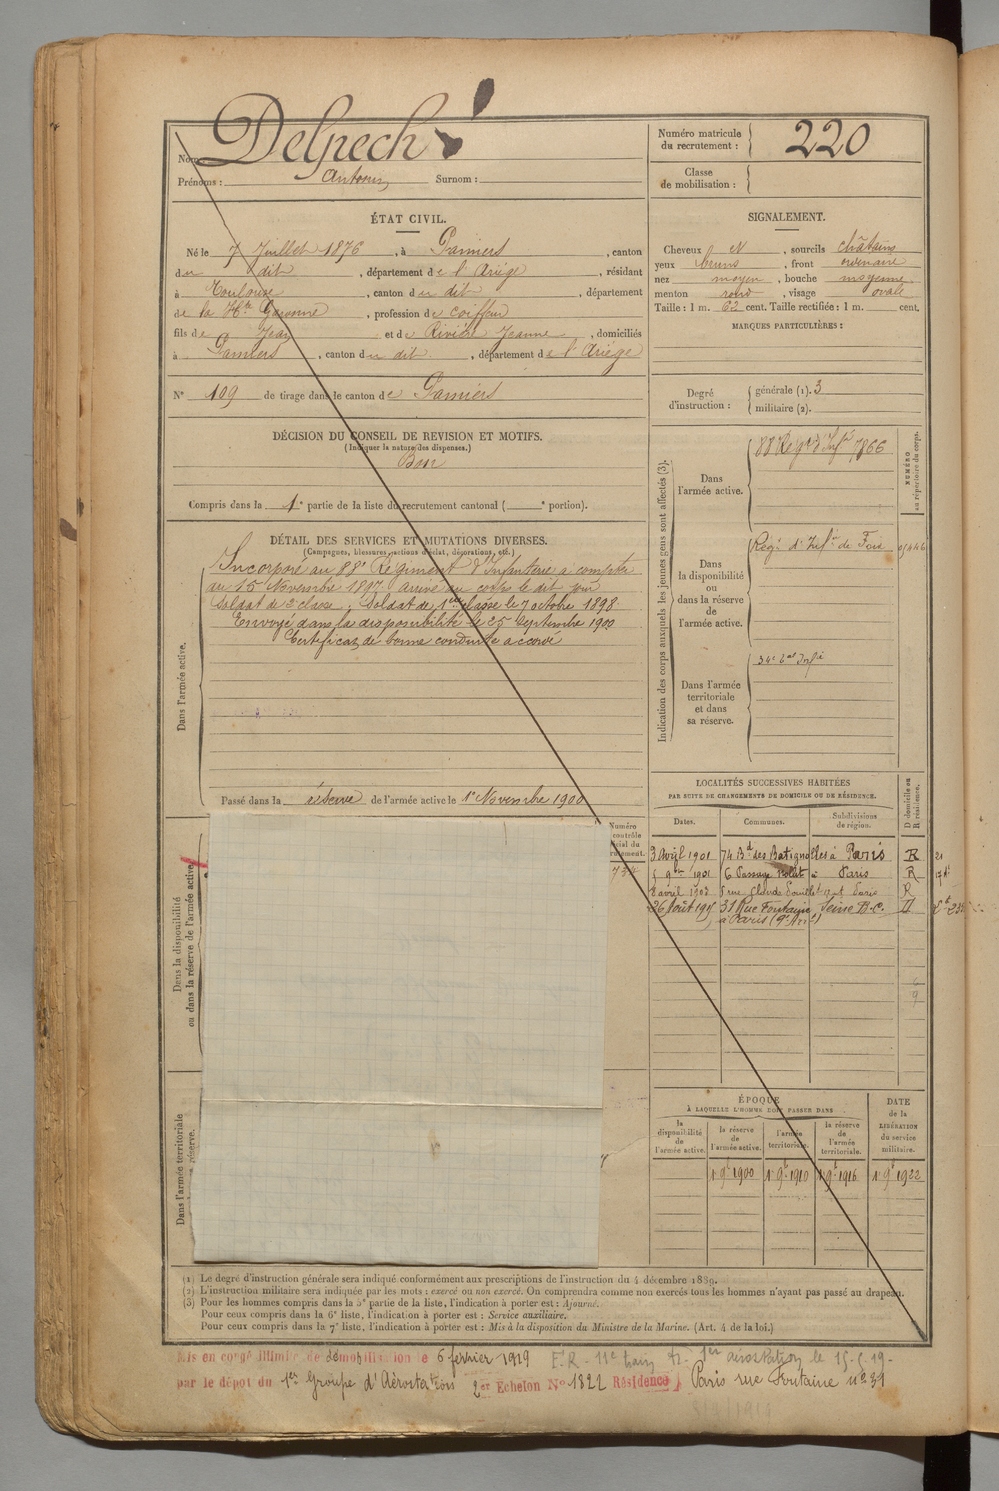 Nom Delpech
Prénoms : Antonin Surnom :
Numéro matricule du recrutement : 220
Classe de mobilisation :
ÉTAT CIVIL.
Né le 7 Juillet 1876, à Pamiers, canton
du dit, département de l'Ariège, résidant
à Toulouse, canton du dit, département
de la Hte Garonne, profession de coiffeur
fils de Jean et de Rivière Jeanne, domiciliés
à Pamiers, canton du dit, département de l'Ariège
N° 109 de tirage dans le canton de Pamiers
SIGNALEMENT.
Cheveux et, sourcils châtains
yeux bruns, front ordinaire
nez moyen, bouche moyenne
menton rond, visage ovale
Taille : 1 m. 62 cent. Taille rectifiée : 1 m. cent.
MARQUES PARTICULIÈRES :
Degré d'instruction : générale (1). 3
militaire (2).
DÉCISION DU CONSEIL DE REVISION ET MOTIFS.
(Indiquer la nature des dispenses.)
Bon
Compris dans la 1e partie de la liste du recrutement cantonal ( e portion).
DÉTAIL DES SERVICES ET MUTATIONS DIVERSES.
(Campagnes, blessures, actions d'éclat, décorations, etc.)
Dans l'armée active.
Incorporé au 88e Régiment d'Infanterie à compter
du 15 Novembre 1897 arrivé au corps le dit jour
Soldat de 2e classe. Soldat de 1ere classe le 7 octobre 1898.
Envoyé dans la disponibilité le 25 Septembre 1900
Certificat de bonne conduite accordé
Passé dans la réserve de l'armée active le 1e Novembre 1900
Dans la disponibilité
ou dans la réserve de l'armée active.
Dans l'armée territoriale
réserve.
Numéro
contrôle
734
Indication des corps auxquels les jeunes gens sont affectés (3).
NUMÉRO
au répertoire du corps.
Dans l'armée active.
88 Régt d'Infie 7866
Dans la disponibilité ou dans la réserve de l'armée active.
Régt d'Infie de Foix
Dans l'armée territoriale et dans sa réserve.
34e Infie
LOCALITÉS SUCCESSIVES HABITÉES
PAR SUITE DE CHANGEMENTS DE DOMICILE OU DE RÉSIDENCE.
Dates. Communes. Subdivisions de région. D domicile ou R résidence.
3 Avril 1901 74 Bd des Batignolles à Paris R 21
5 9bre 1901 6 Passage à Paris R
8 avril 1903 rue Claude Pouillet Paris R
26 Août 1915 31 Rue Fontaine Seine B.C. D
à Paris (9e Arrt)
ÉPOQUE
À LAQUELLE L'HOMME DOIT PASSER DANS
la disponibilité de l'armée active.
la réserve de l'armée active.
l'armée territoriale.
la réserve de l'armée territoriale.
DATE de la LIBÉRATION du service militaire.
1e 9bre 1900 1e 9bre 1910 1e 9bre 1916 1e 9bre 1922
(1) Le degré d'instruction générale sera indiqué conformément aux prescriptions de l'instruction du 4 décembre 1889.
(2) L'instruction militaire sera indiquée par les mots : exercé ou non exercé. On comprendra comme non exercés tous les hommes n'ayant pas passé au drapeau.
(3) Pour les hommes compris dans la 5e partie de la liste, l'indication à porter est : Ajourné.
Pour ceux compris dans la 6e liste, l'indication à porter est : Service auxiliaire.
Pour ceux compris dans la 7e liste, l'indication à porter est : Mis à la disposition du Ministre de la Marine. (Art. 4 de la loi.)
Mis en congé illimité de démobilisation le 6 fevrier 1919
par le dépot du 1er Groupe d'Aérostation 2er Echelon No 1822 Résidence Paris rue Fontaine no 31